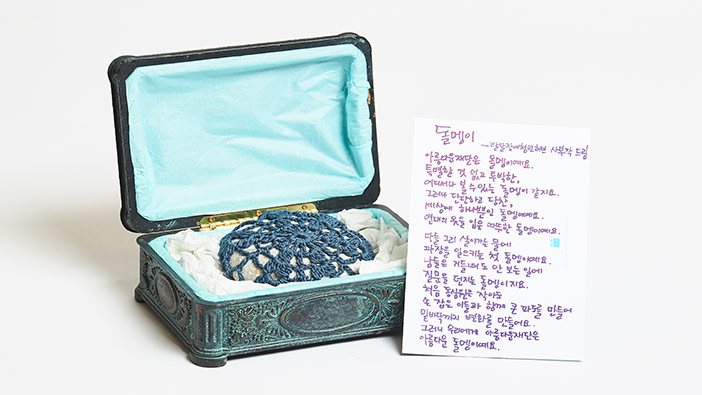 돌멩이
– 발달장애청년허브 사부작 드림
아름다운재단은 돌멩이예요.
특별할 것 없고 투박한,
어디서나 볼 수 있는 돌멩이 같지요.
그러나 단단하고 당찬,
세상에 하나뿐인 돌멩이예요.
연대의 옷을 입은 따뜻한 돌멩이예요.
다들 그리 살아가는 물에
파장을 일으키는 첫 돌멩이예요.
남들은 거들떠도 안 보는 일에
질문을 던지는 돌멩이지요.
처음 동심원은 작아도
손 잡은 이들과 함께 큰 파도를 만들어
밑바닥까지 변화를 만들어요.
그러니 우리에게 아름다운재단은
아름다운 돌멩이예요.